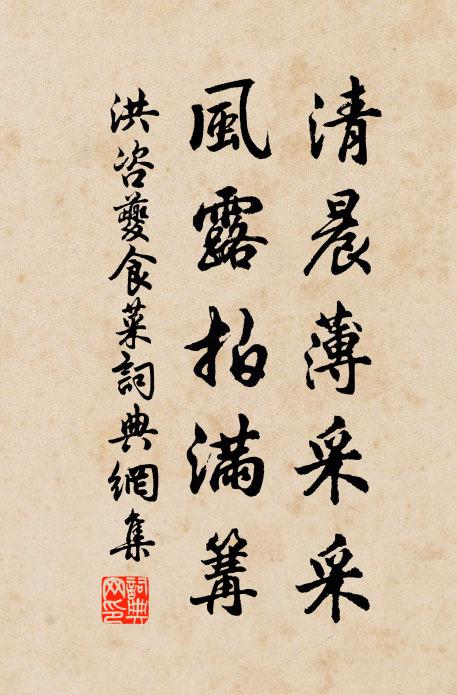 清晨薄采采
風露拍滿篝
洪咨夔食菜詞典網集
詞典網印